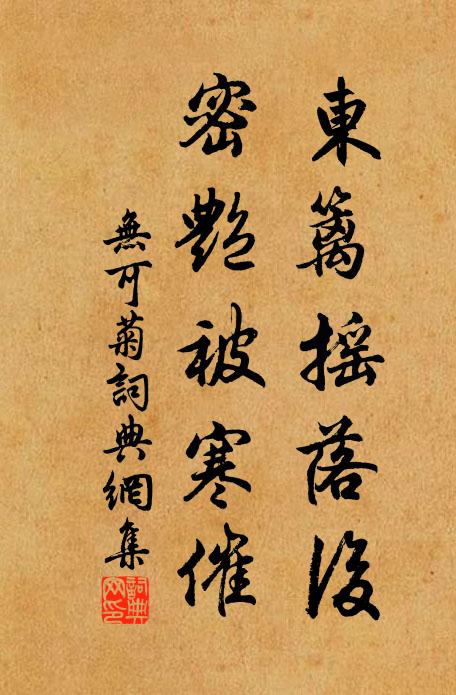 東籬搖落後
密艷被寒催
無可菊詞典網集
詞典網印